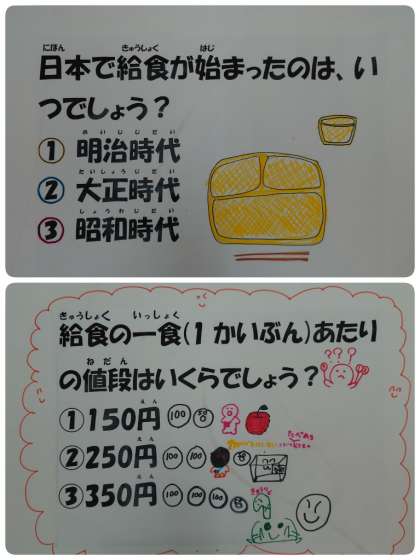 にほん きゅうしょく はじ
日本で給食が始まったのは、い
つでしょう？
めいじじだい
① 明治時代
たいしょうじだい
② 大正時代
しょうわじだい
③ 昭和時代
きゅうしょく いっしょく
給食の一食(1かいぶん)あたり
ねだん
の値段はいくらでしょう？
???
えん
①150円 100 50
えん
②250円 100 100 50
えん
③350円 100 100 100 50